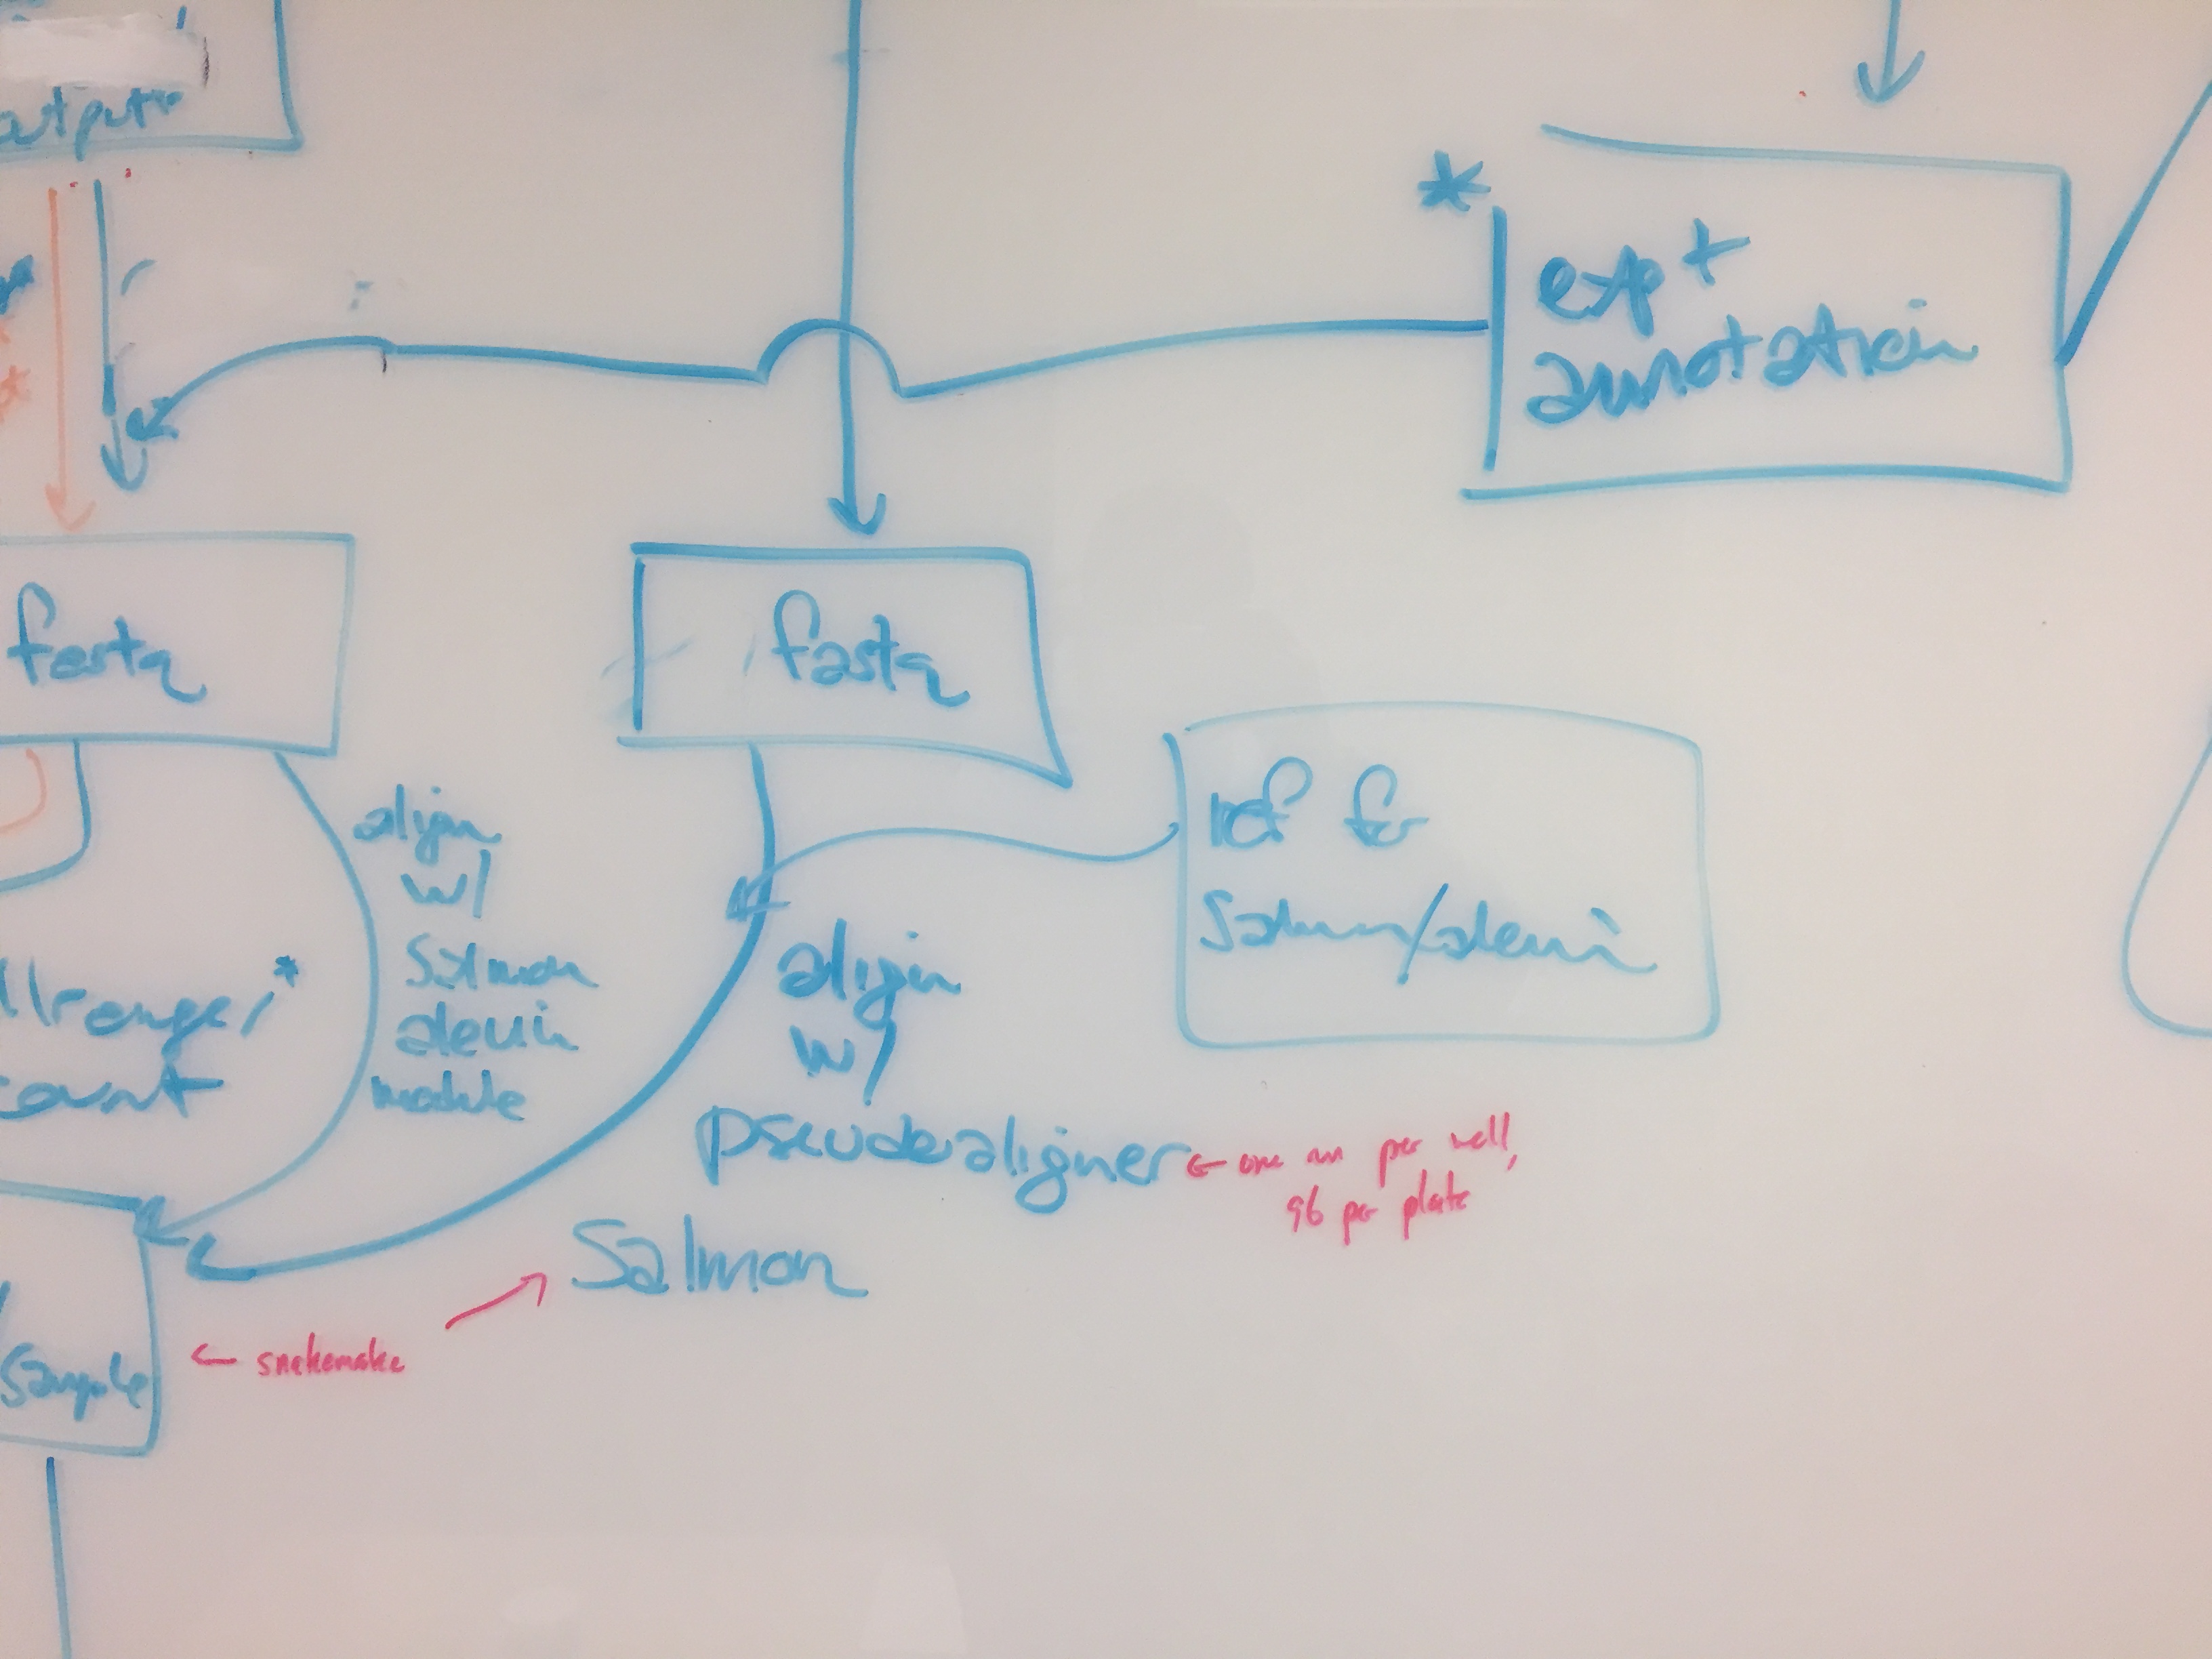 output
*
expt
annotation
fastq
fastq
ref for
Salmon/alevin
align
w/
Salmon
alevin
module
llranger *
count
align
w/
pseudoaligner
← one run per well,
96 per plate
Salmon
← snakemake
Sample